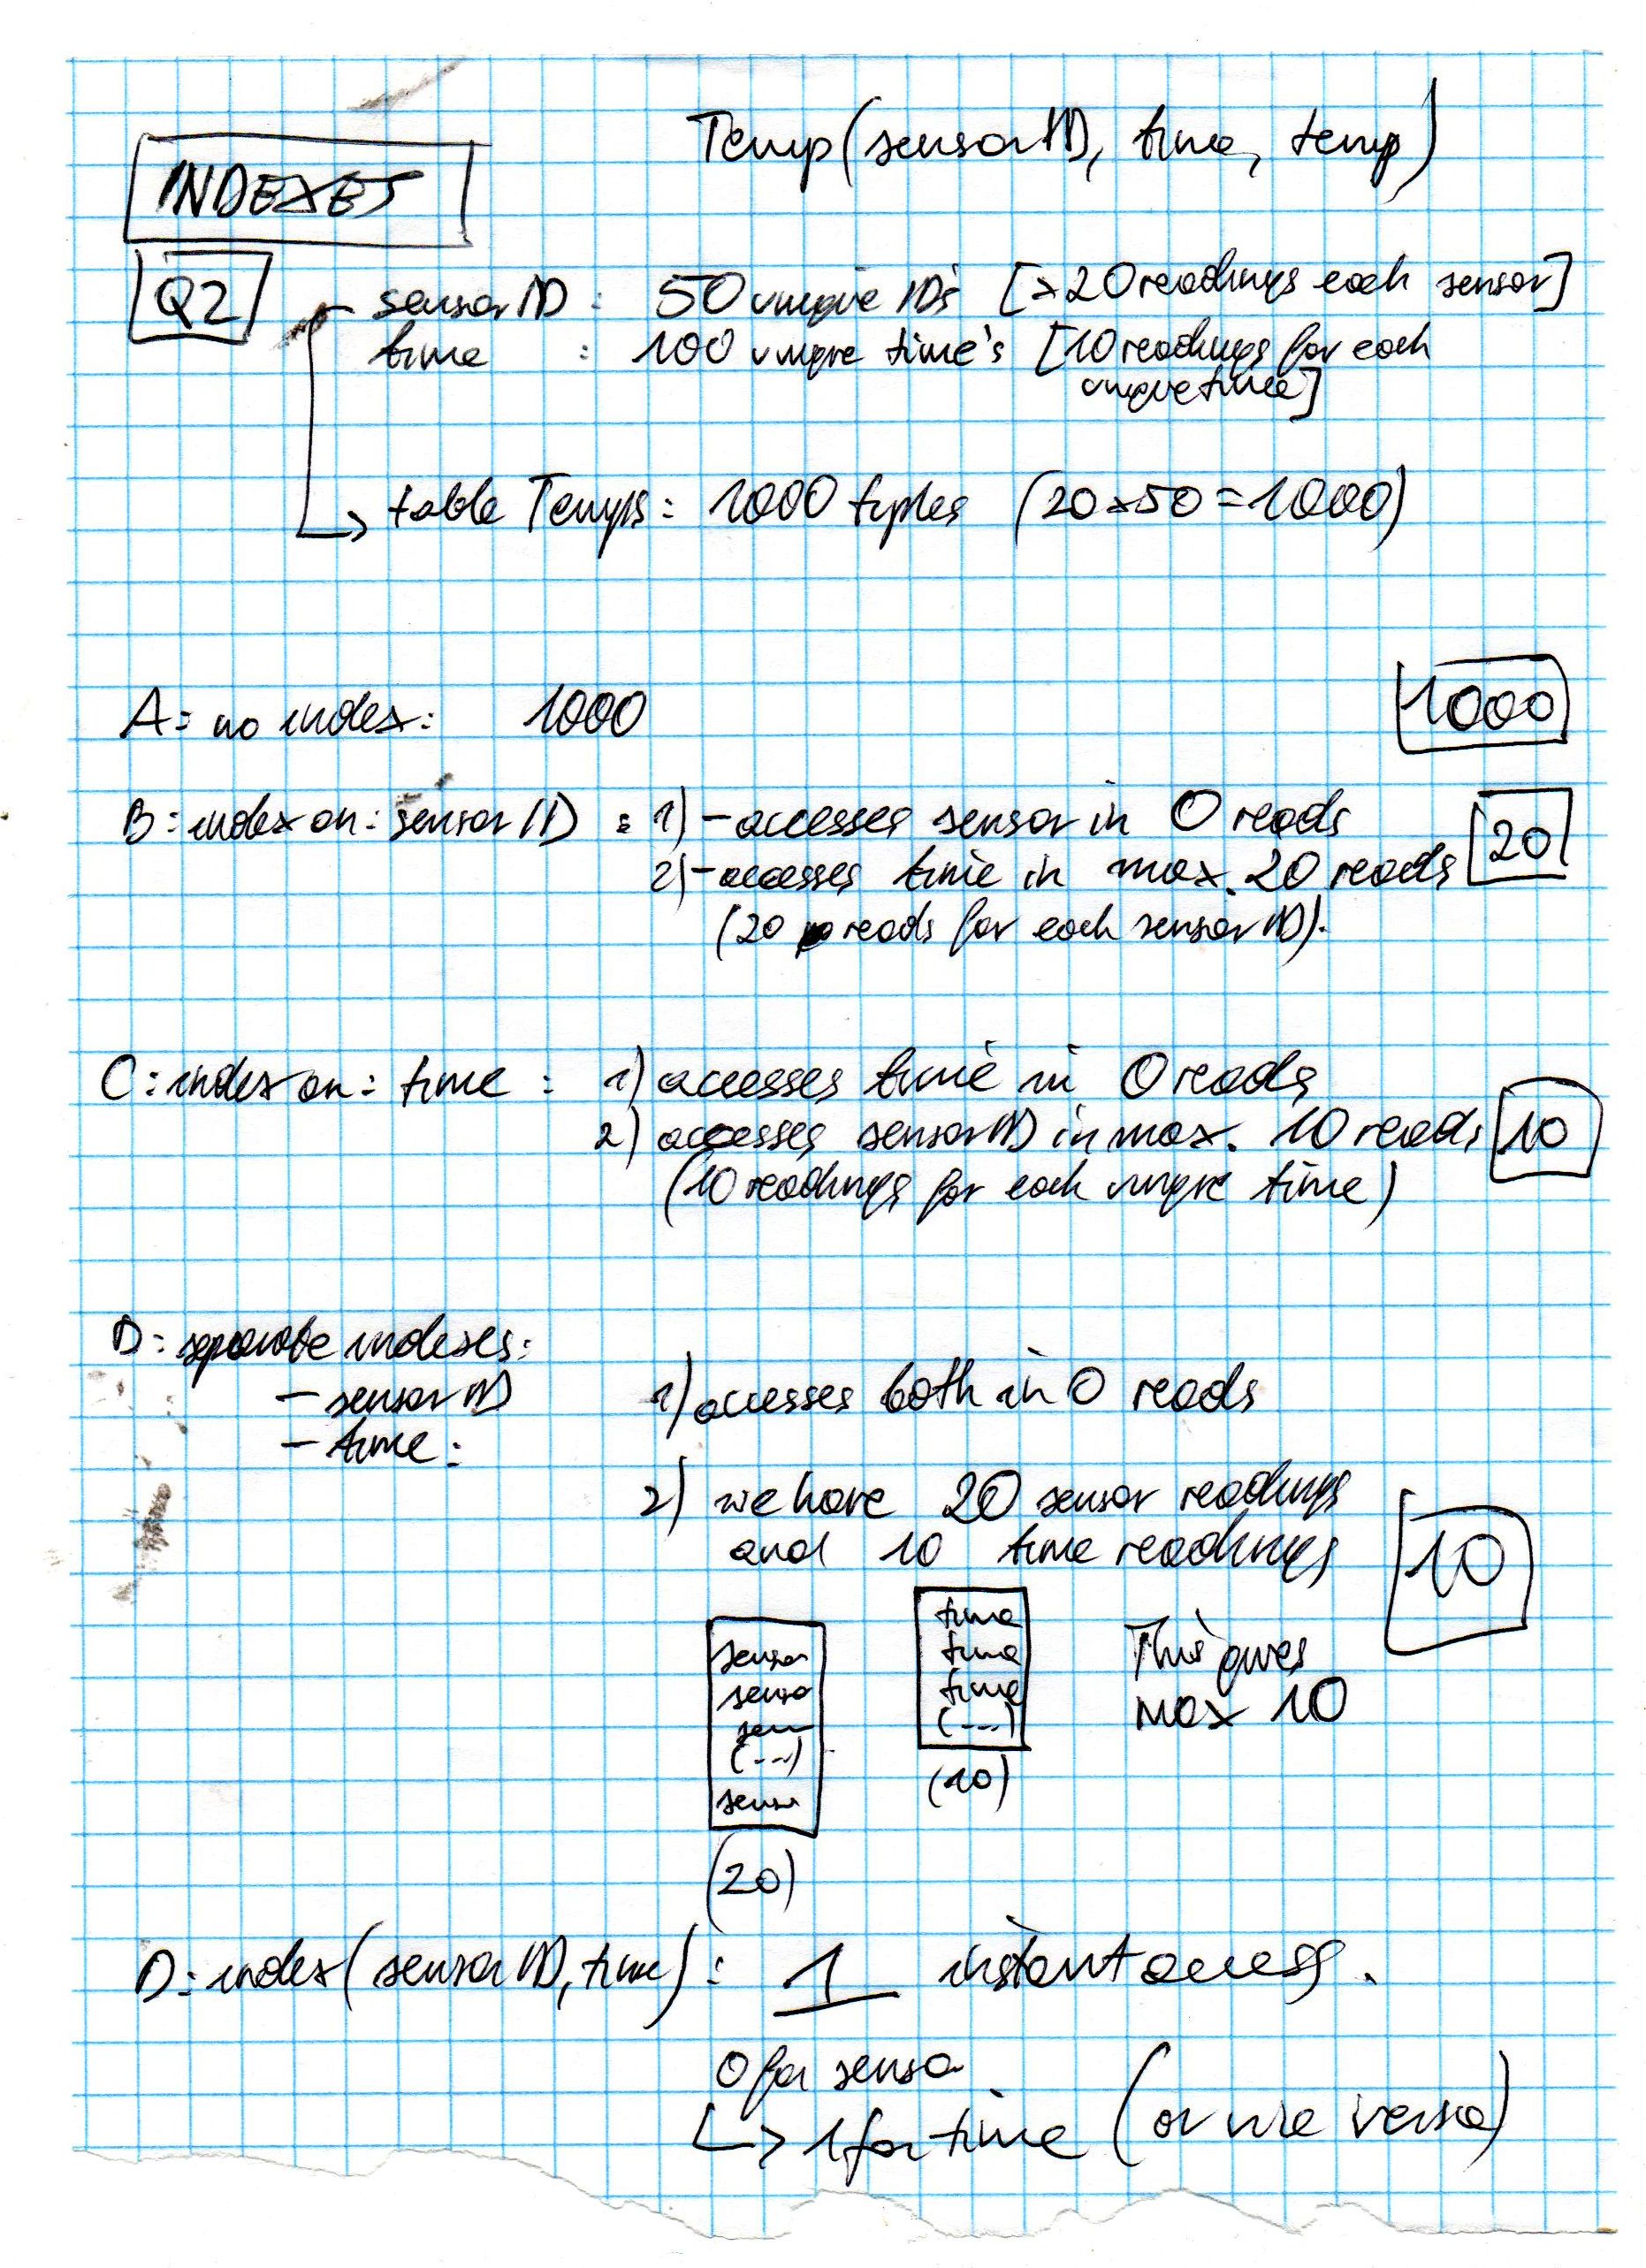 Temp(sensorID, time, temp)
INDEXES
Q2
sensorID : 50 unique IDs [×20 readings each sensor]
time : 100 unique time's [10 readings for each
unique time]
table Temps: 1000 tuples (20×50=1000)
A: no index: 1000
1000
B: index on: sensorID : 1) - accesses sensor in 0 reads
20
2) - accesses time in max. 20 reads
(20 reads for each sensorID).
C: index on: time : 1) accesses time in 0 reads
2) accesses sensorID in max. 10 reads
10
(10 readings for each unique time)
D: separate indexes:
- sensorID
1) accesses both in 0 reads
- time:
2) we have 20 sensor readings
and 10 time readings
10
time
time
time
(---)
(10)
sensor
senso
sen
(---)
senso
(20)
This gives
max 10
D: index(sensorID, time) : 1 instant access.
0 for senso
↳ 1 for time (or vice versa)